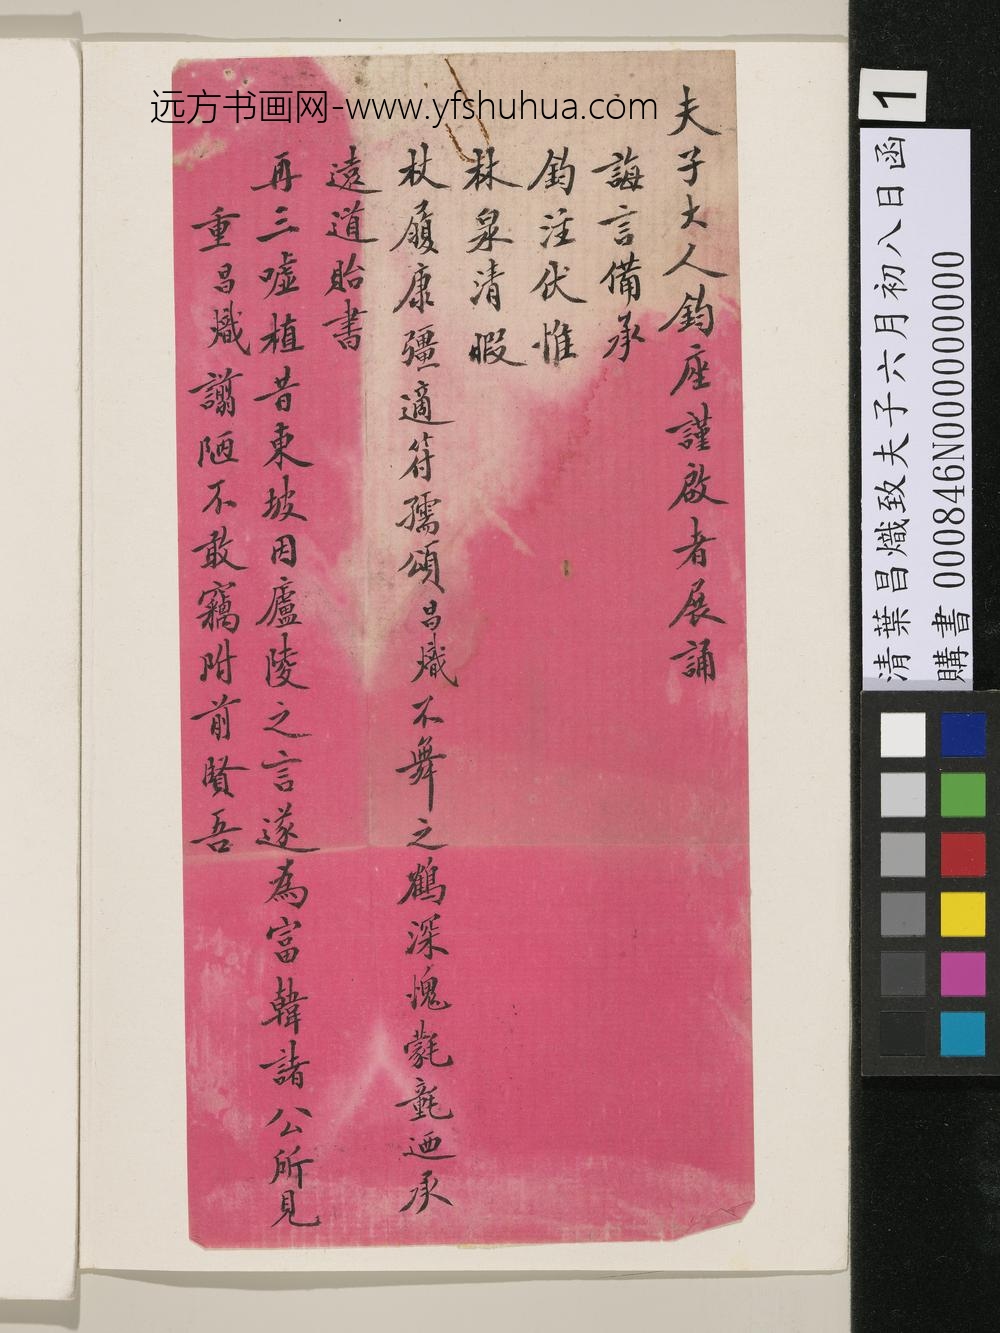 远方书画网-www.yfshuhua.com
夫子大人鈞座謹啟者展誦
誨言備承
鈞注伏惟
林泉清暇
杖履康彊適符孺頌昌熾不舞之鶴深愧氋氃迺承
遠道貽書
再三噓植昔東坡因廬陵之言遂為富韓諸公所見
重昌熾譾陋不敢竊附前賢吾
1
清葉昌熾致夫子六月初八日函
購書 000846N000000000